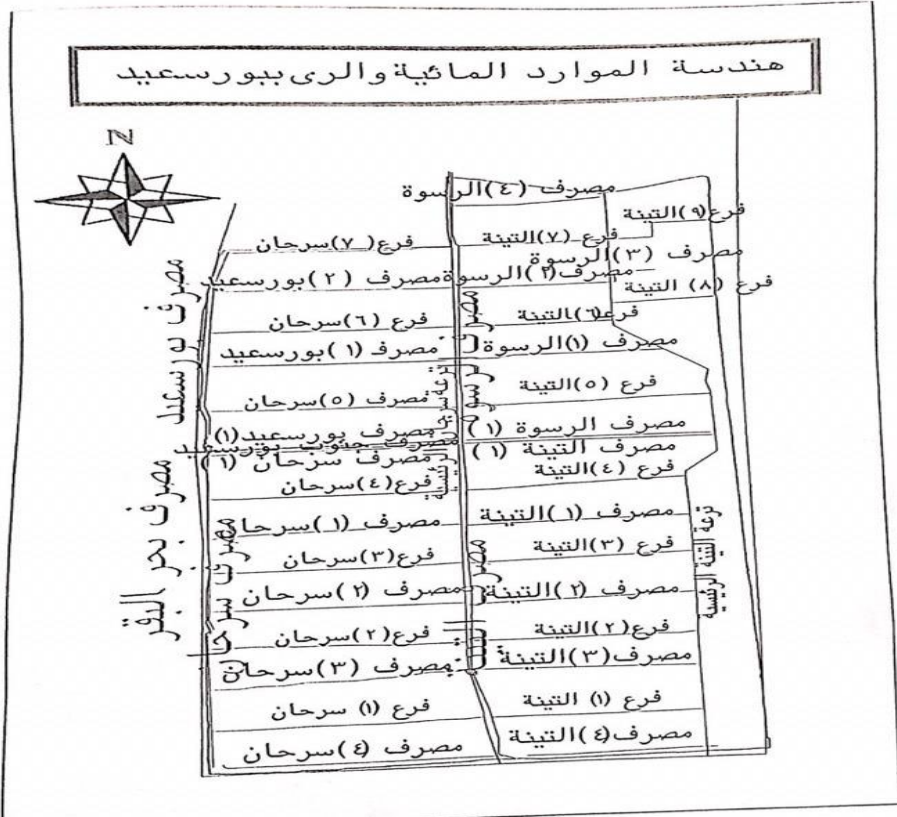 هندسة الموارد المائية والرى ببورسعيد
N
مصرف (٤) الرسوة
فرع (٩) التينة
فرع (٧) سرحان
فرع (٧) التينة
مصرف (٣) الرسوة
مصرف (٢) بورسعيد
مصرف (٢) الرسوة
فرع (٨) التينة
فرع (٦) سرحان
فرع (٦) التينة
مصرف (١) بورسعيد
مصرف (١) الرسوة
مصرف (٥) سرحان
فرع (٥) التينة
مصرف بورسعيد (١)
مصرف الرسوة (١)
مصرف جنوب بورسعيد
مصرف سرحان (١)
مصرف التينة (١)
فرع (٤) سرحان
فرع (٤) التينة
مصرف (١) سرحان
مصرف (١) التينة
فرع (٣) سرحان
فرع (٣) التينة
مصرف (٢) سرحان
مصرف (٢) التينة
فرع (٢) سرحان
فرع (٢) التينة
مصرف (٣) سرحان
مصرف (٣) التينة
فرع (١) سرحان
فرع (١) التينة
مصرف (٤) سرحان
مصرف (٤) التينة
مصرف بورسعيد
مصرف بحر البقر
مصرف سرحان
مصرف التينة
ترعة التينة الرئيسية